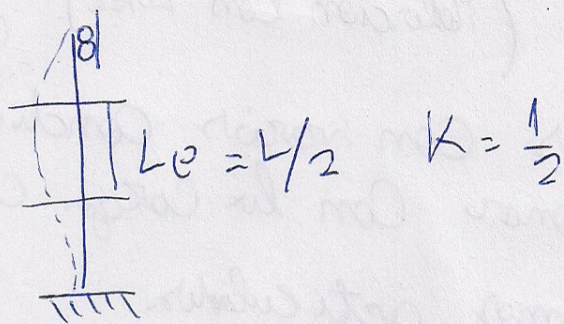 Le = L/2 K = 1/2